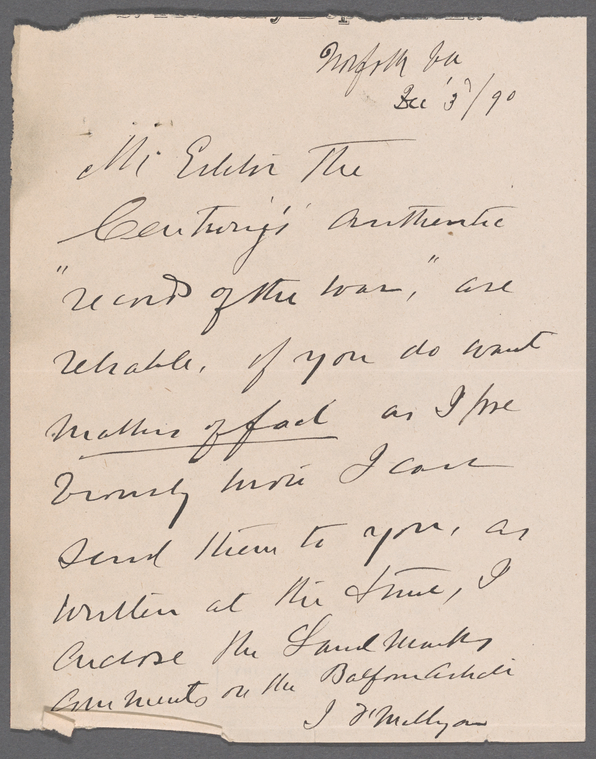 Norfolk Va
Dec 3/90
Mr Editor The
Century's authentic
"records of the war," are
reliable, if you do want
matters of fact as I pre
viously wrote I can
send them to you, as
written at the time, I
enclose the Landmarks
comments on the Balfour article